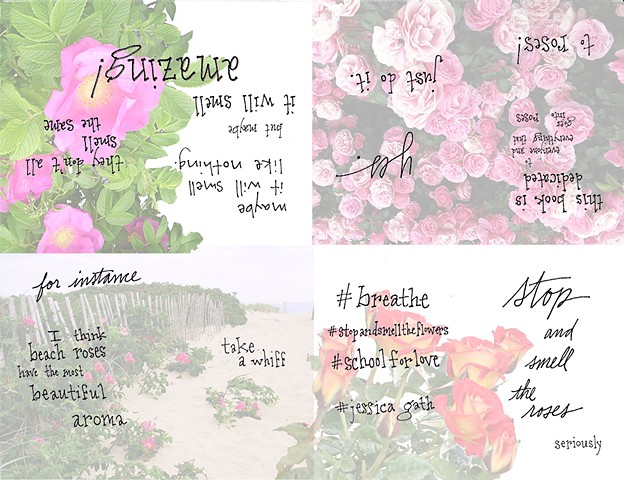 maybe
it will smell
like nothing.
but maybe
it will smell
amazing!
they don't all
smell
the same
this book is
dedicated
to
everyone and
everything that
goes
into roses
to roses!
yes.
just do it.
for instance
I think
beach roses
have the most
beautiful
aroma
take
a whiff
#breathe
#stopandsmelltheflowers
#schoolforlove
#jessica gath
stop
and
smell
the
roses
seriously